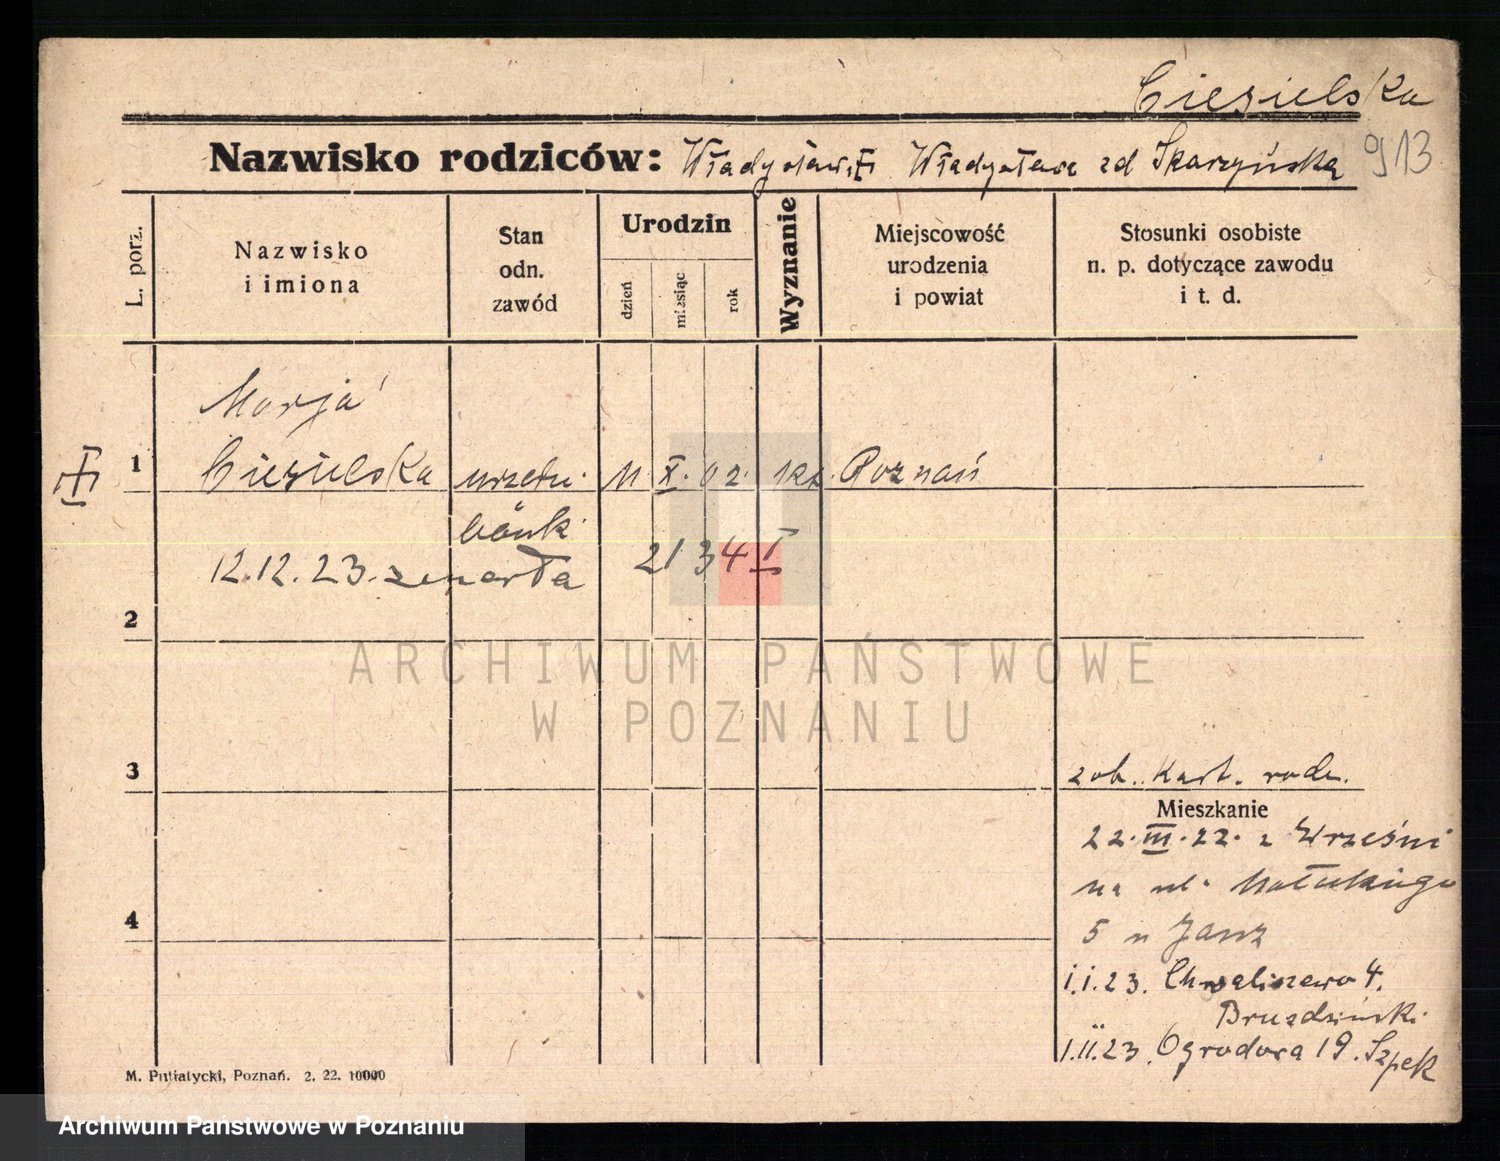 Ciesielska
913
Nazwisko rodziców: Władysław i Władysława zd Skarzyńska
L. porz.
Nazwisko i imiona
Stan odn. zawód
Urodzin
dzień
miesiąc
rok
Wyznanie
Miejscowość urodzenia i powiat
Stosunki osobiste n. p. dotyczące zawodu i t. d.
Marja
1 Ciesielska urzedn. 11 X. 02. kt. Poznań
bank.
12.12.23. zmarła 21 34 I
2
3
zob. Kart. rodz.
Mieszkanie
22.III.22. z Wrześni
na ul.
4
5 u
1.1.23. Chwaliszewo 4.
Bruzdziński
1.II.23. Ogrodowa 19. Szpek
M. Putiatycki, Poznań. 2. 22. 10000
ARCHIWUM PAŃSTWOWE
W POZNANIU
Archiwum Państwowe w Poznaniu